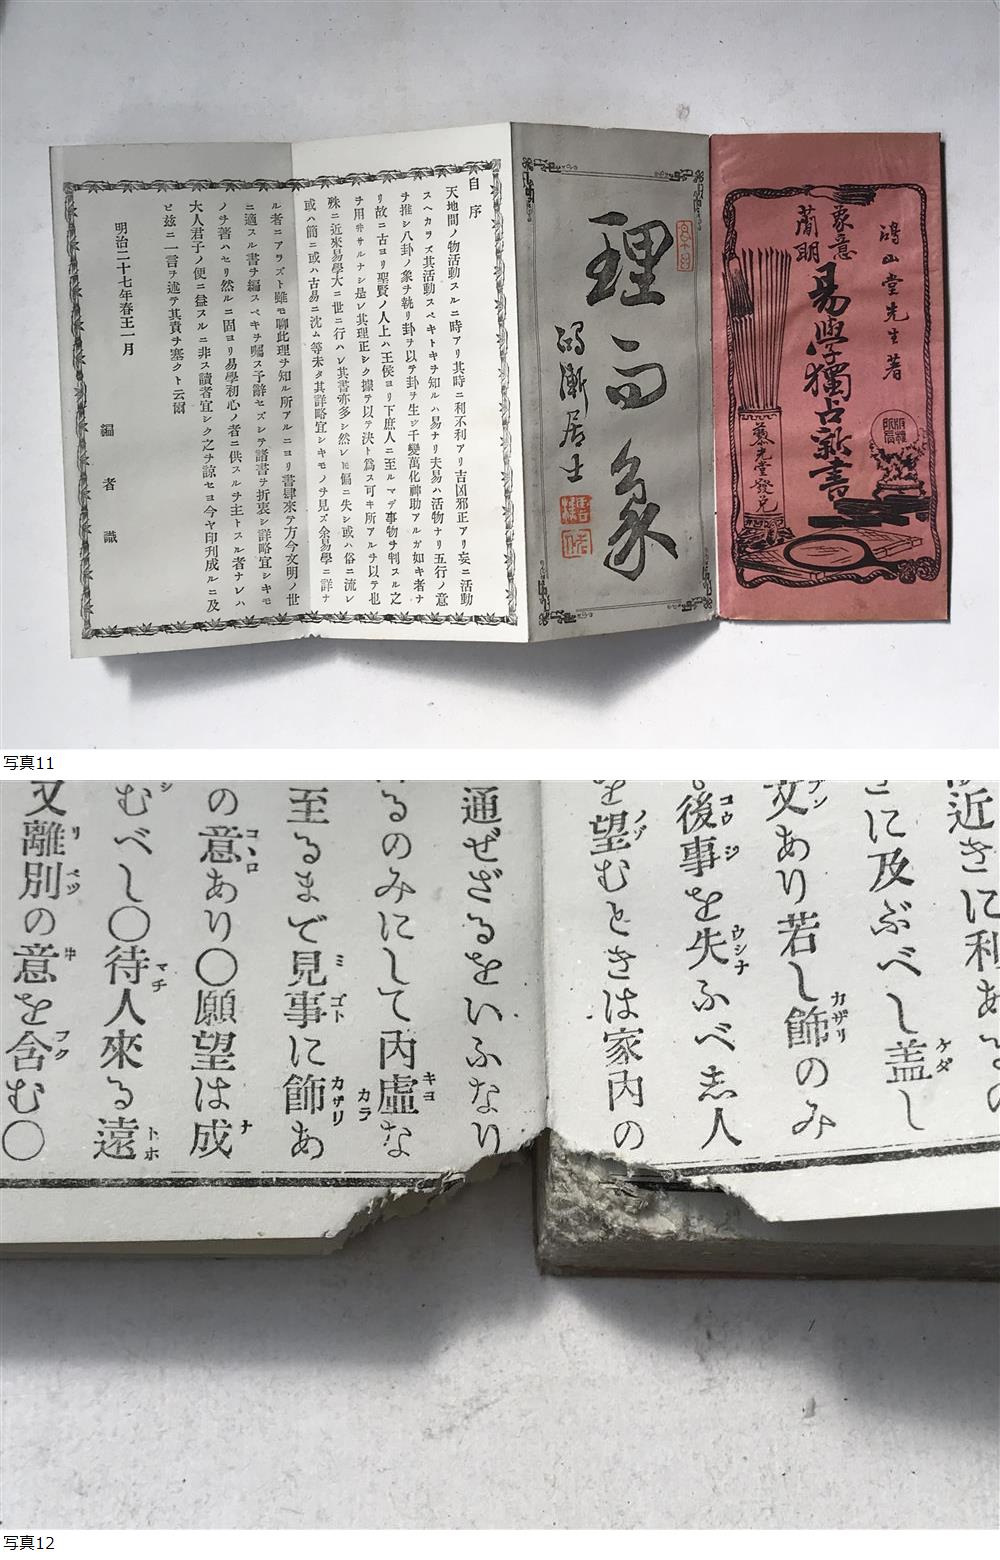 鴻山堂先生著
象意
簡明
易學獨占新書
慕光堂發兌
理而象
鴻漸居士
自序
天地間ノ物活動スルニ時アリ其時ニ利不利アリ吉凶邪正アリ妄ニ活動
スヘカラズ其活動スベキトキヲ知ルハ易ナリ夫易ハ活物ナリ五行ノ意
ヲ推シ八卦ノ象ヲ執リ卦ヲ以テ卦ヲ生ジ千變萬化神助アルガ如キ者ナ
リ故ニ古ヨリ聖賢ノ人上ハ王侯ヨリ下庶人ニ至ルマデ事物ヲ判スル之
ヲ用ヰサルナシ是レ其理正シク據テ以テ決ト爲ス可キ所アルヲ以テ也
殊ニ近來易學大ニ世ニ行ハレ其書亦多シ然レ𪜈偏ニ失シ或ハ俗ニ流レ
或ハ簡ニ或ハ古易ニ沈ム等未タ其詳略宜シキモノヲ見ズ余易學ニ詳ナ
ル者ニアラズト雖モ聊此理ヲ知ル所アルニヨリ書肆來テ方今文明ノ世
ニ適スル書ヲ編スベキヲ囑ス予辭セズシテ諸書ヲ折衷シ詳略宜シキモ
ノヲ著ハセリ然ルニ固ヨリ易學初心ノ者ニ供スルヲ主トスル者ナレハ
大人君子ノ便ニ益スルニ非ス讀者宜シク之ヲ諒セヨ今ヤ印刊成ルニ及
ビ玆ニ一言ヲ述テ其責ヲ塞クト云爾
明治二十七年春王一月
編者識
写真11
近きに利ある
に及ぶべし盖し
文あり若し飾のみ
後事を失ふべし人
を望むときは家内の
通ぜざるをいふなり
るのみにして内虛な
至るまで見事に飾あ
の意あり〇願望は成
むべし〇待人來る遠
又離別の意を含む〇
写真12